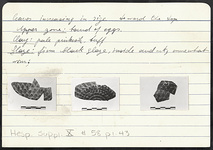 increasing in size toward the rim
Upper zone: band of eggs.
Clay: pale pinkish buff
Glaze: firm black glaze, inside and out, somewhat
worn.
Hesp. Suppl. X # 58 pl. 43